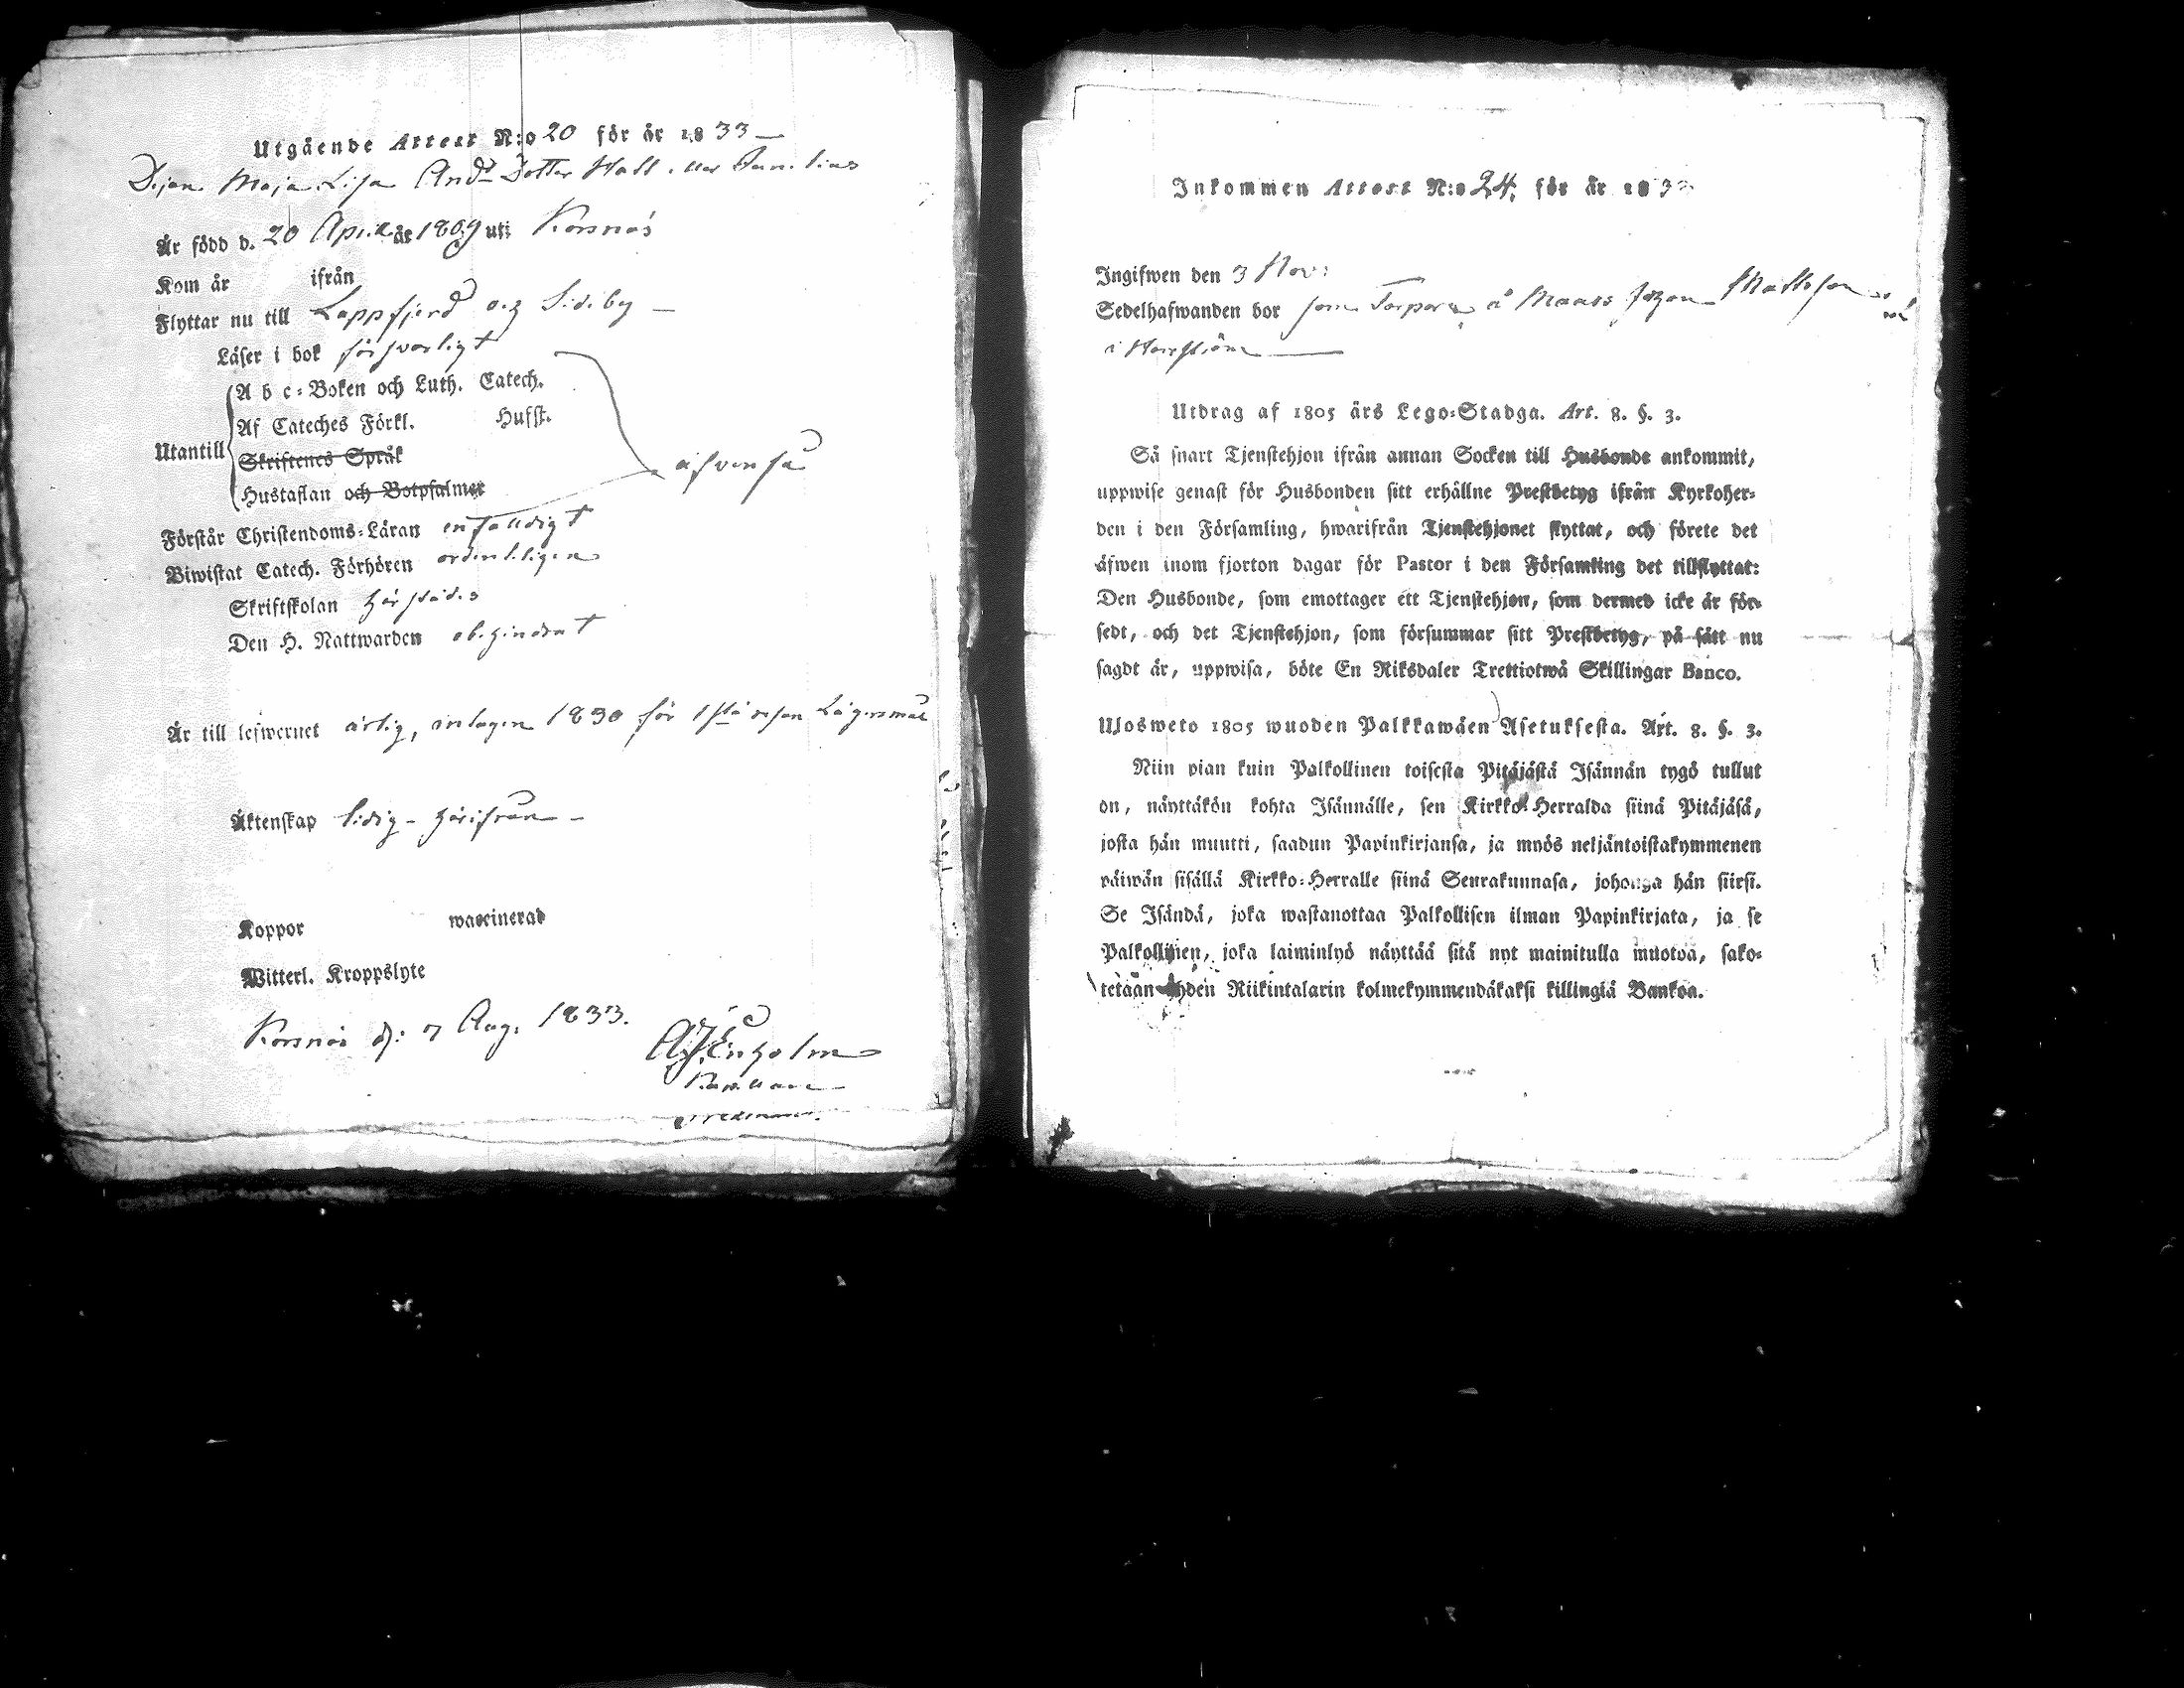 Utgående Attest N:o 20 för år 1833 —
Maja Lisa And: Dotter Hall
Är född d. 20 April år 1809 uti Korsnäs
Kom år ifrån
Flyttar nu till Lappfjerd och Sideby —
Läser i bok försvarligt
Utantill
A b c-Boken och Luth. Catech.
Af Cateches Förkl. Hufft.
Skriftenes Språk
Hustaflan och Botpsalmer
äfvenså
Förstår Christendoms-Läran enfalldigt
Biwistat Catech. Förhören ordenteligen
Skriftskolan härstädes
Den H. Nattwarden obehindrat
Är till lefwernet ärlig, 1830 för 1sta resan Lägersmål
Äktenskap ledig - härifrån -
Koppor waccinerad
Witterl. Kroppslyte
Korsnäs d: 7 Aug. 1833.
Inkommen Attest N:o 24. för år 183
Ingifwen den 3 Nov:
Sedelhafwanden bor som å Mattsson
i
Utdrag af 1805 års Lego-Stadga. Art. 8. §. 3.
Så snart Tjenstehjon ifrån annan Socken till Husbonde ankommit,
uppwise genast för Husbonden sitt erhållne Prestbetyg ifrån Kyrkoher-
den i den Församling, hwarifrån Tjenstehjonet flyttat, och förete det
äfwen inom fjorton dagar för Pastor i den Församling det tillflyttat:
Den Husbonde, som emottager ett Tjenstehjon, som dermed icke är för-
sedt, och det Tjenstehjon, som försummar sitt Prestbetyg, på sätt nu
sagdt är, uppwisa, böte En Riksdaler Trettiotwå Skillingar Banco.
Ulosweto 1805 wuoden Palkkawäen Asetuksesta. Art. 8. §. 3.
Niin pian kuin Palkollinen toisesta Pitäjästä Isännän tygö tullut
on, näyttäkön kohta Isännälle, sen Kirkko-Herralda siinä Pitäjäsä,
josta hän muutti, saadun Papinkirjansa, ja myös neljäntoistakymmenen
päiwän sisällä Kirkko-Herralle siinä Seurakunnasa, johonga hän siirsi.
Se Isändä, joka wastanottaa Palkollisen ilman Papinkirjata, ja se
Palkollinen, joka laiminlyö näyttää sitä nyt mainitulla muotoa, sako-
tetaan yhden Riikintalarin kolmekymmendäkaksi killingiä Bankoa.